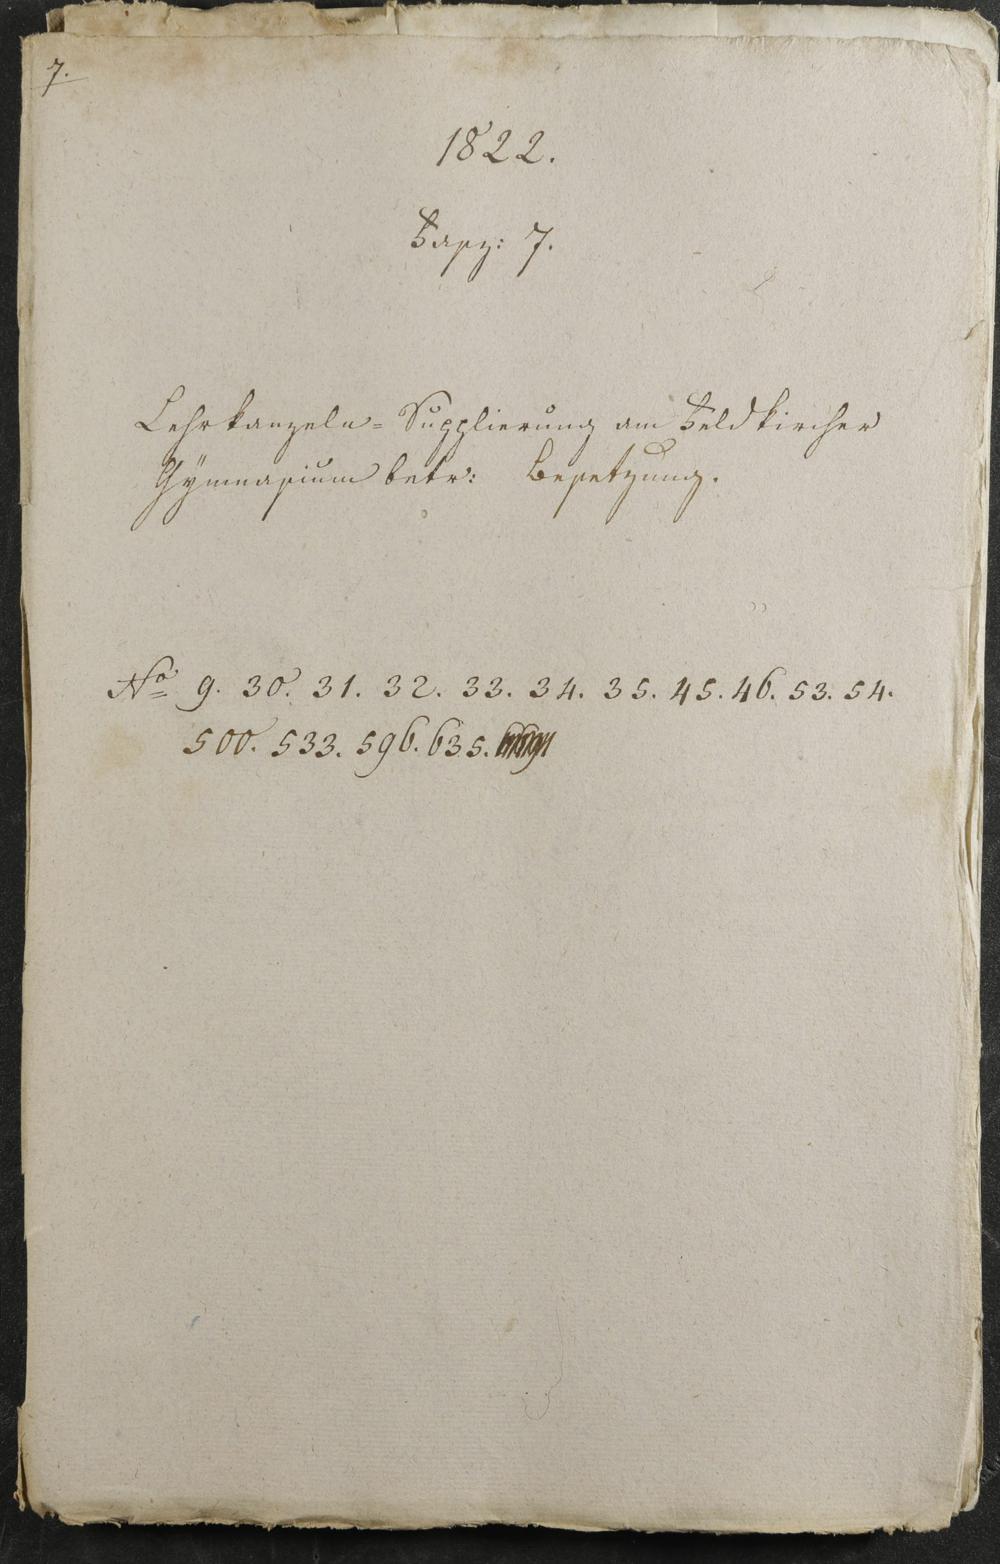 7.
1822.
Fasz: 7.
Lehrkanzeln=Supplierung am Feldkircher
Gÿmnasium betr: Besetzung.
No 9. 30. 31. 32. 33. 34. 35. 45. 46. 53. 54.
500. 533. 596. 635.